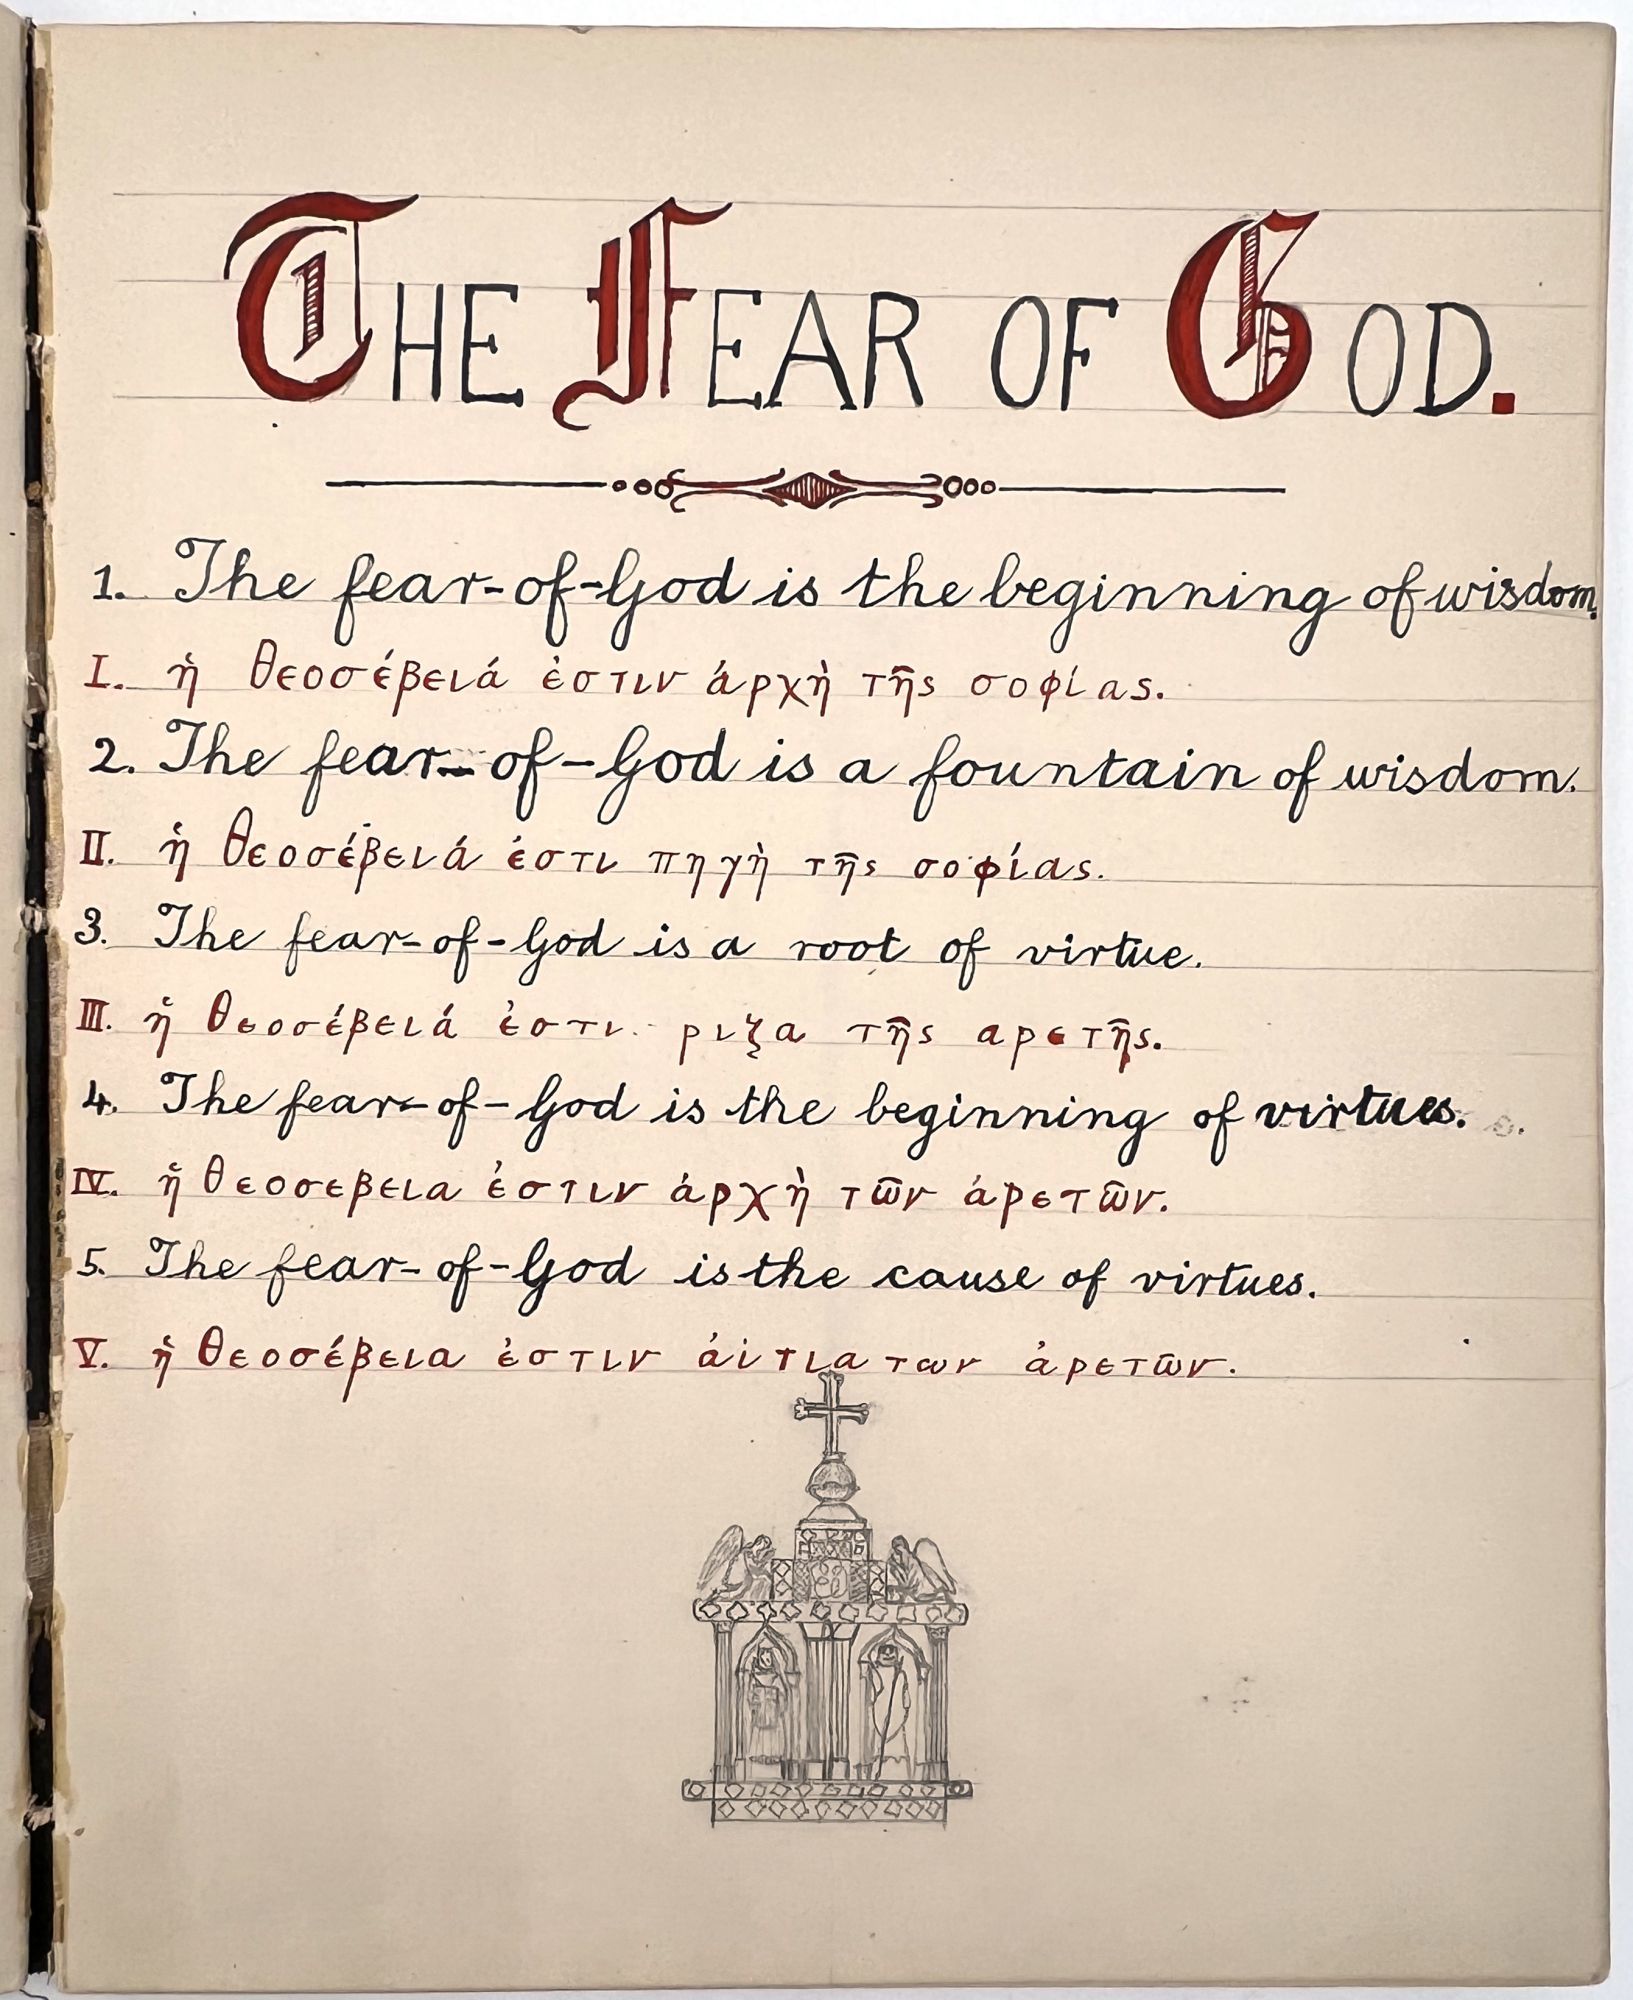 THE FEAR OF GOD.
1. The fear-of-God is the beginning of wisdom.
I. ἡ θεοσέβειά ἐστιν ἀρχὴ τῆς σοφίας.
2. The fear-of-God is a fountain of wisdom.
II. ἡ θεοσέβειά ἐστι πηγὴ τῆς σοφίας.
3. The fear-of-God is a root of virtue.
III. ἡ θεοσέβειά ἐστι ριζα τῆς αρετῆς.
4. The fear-of-God is the beginning of virtues.
IV. ἡ θεοσεβεια ἐστιν ἀρχὴ τῶν ἀρετῶν.
5. The fear-of-God is the cause of virtues.
V. ἡ θεοσέβεια ἐστιν ἀίτια των ἀρετῶν.